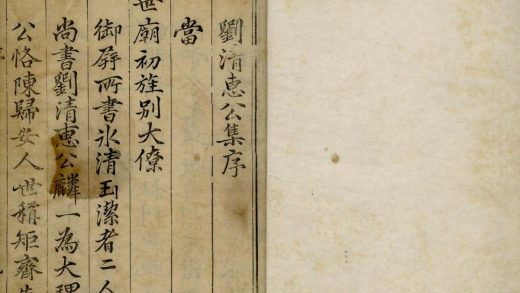 劉清惠公集序
當
世廟初旌别大僚
御屏所書氷清玉潔者二人
尚書劉清惠公麟一為大理
公恪陳歸安人世稱矩齋先